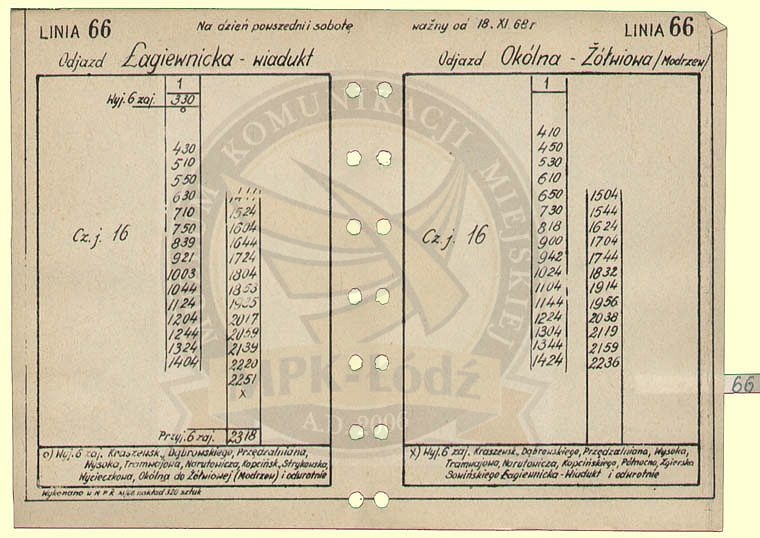 LINIA 66
Na dzień powszedni i sobotę
ważny od 18. XI. 68 r
LINIA 66
Odjazd Łagiewnicka - wiadukt
Odjazd Okólna - Żółwiowa (Modrzew)
1
Wyj. 6 zaj. 330
o
430
510
550
630
710
750
839
921
1003
1044
1124
1204
1244
1324
1404
Cz. j. 16
1524
1604
1644
1724
1804
1853
1935
2017
2059
2139
2220
2251
x
Przyj. 6 zaj. 2318
1
410
450
530
610
650
730
818
900
942
1024
1104
1144
1224
1304
1344
1424
Cz. j. 16
1504
1544
1624
1704
1744
1832
1914
1956
2038
2119
2159
2236
o) Wyj. 6 zaj. Kraszewsk., Dąbrowskiego, Przędzalniana,
Wysoka, Tramwajowa, Narutowicza, Kopcińsk, Strykowska,
Wycieczkowa, Okólna do Żółwiowej (Modrzew) i odwrotnie
x) Wyj. 6 zaj. Kraszewsk, Dąbrowskiego, Przędzalniana, Wysoka,
Tramwajowa, Narutowicza, Kopcińskiego, Północno, Zgierska
Sowińskiego Łagiewnicka - Wiadukt i odwrotnie
Wykonano w nakład 320 sztuk
66
MUZEUM KOMUNIKACJI MIEJSKIEJ
MPK-Łódź
A.D. 2006